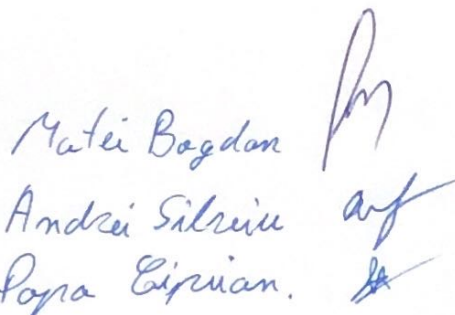 Matei Bogdan
Andrei Silviu
Popa Ciprian.